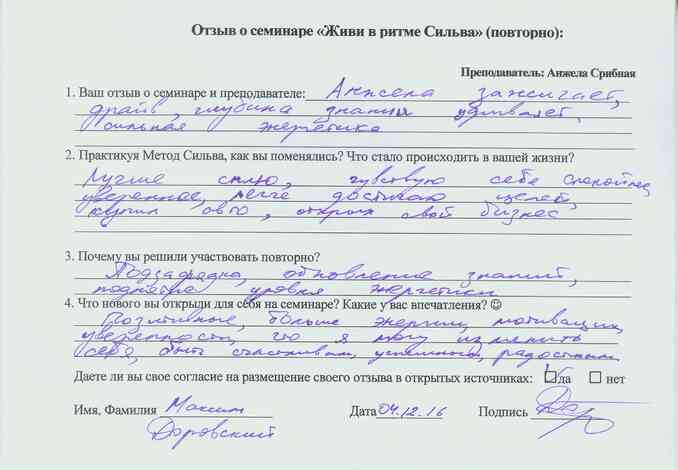 Отзыв о семинаре «Живи в ритме Сильва» (повторно):
Преподаватель: Анжела Срибная
1. Ваш отзыв о семинаре и преподавателе: Анжела зажигает,
драйв, глубина знания удивляет,
сильная энергетика
2. Практикуя Метод Сильва, как вы поменялись? Что стало происходить в вашей жизни?
Лучше сплю, чувствую себя спокойнее,
увереннее, легче достигаю целей,
купил авто, открыл свой бизнес
3. Почему вы решили участвовать повторно?
Подзарядка, обновление знаний,
поднятие уровня энергетики
4. Что нового вы открыли для себя на семинаре? Какие у вас впечатления? ☺
Позитивные, больше энергии, мотивации,
уверенности, что я могу изменить
себя, быть счастливым, успешным, радостным
Даете ли вы свое согласие на размещение своего отзыва в открытых источниках: ☑да ☐ нет
Имя, Фамилия Максим Дата 04.12.16 Подпись
Даровский